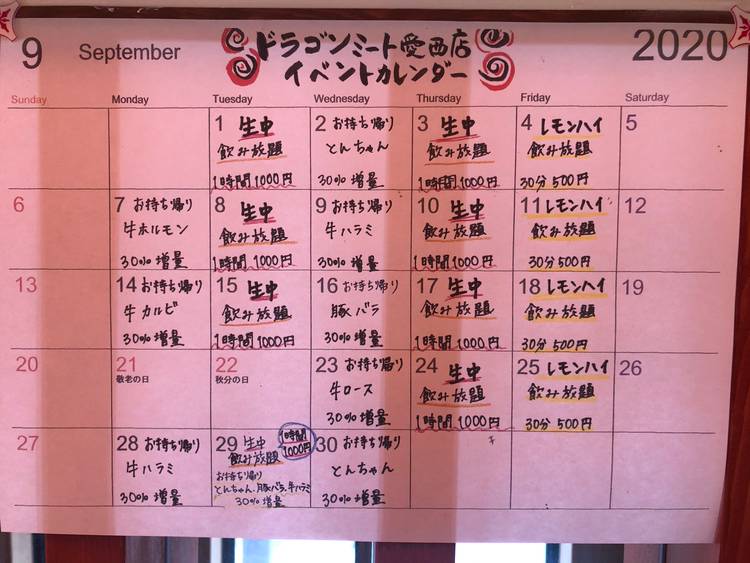 9 September ドラゴンミート愛西店 2020
イベントカレンダー
Sunday Monday Tuesday Wednesday Thursday Friday Saturday
1 生中
飲み放題
1時間1000円
2 お持ち帰り
とんちゃん
30%増量
3 生中
飲み放題
1時間1000円
4 レモンハイ
飲み放題
30分500円
5
6
7 お持ち帰り
牛ホルモン
30%増量
8 生中
飲み放題
1時間1000円
9 お持ち帰り
牛ハラミ
30%増量
10 生中
飲み放題
1時間1000円
11 レモンハイ
飲み放題
30分500円
12
13
14 お持ち帰り
牛カルビ
30%増量
15 生中
飲み放題
1時間1000円
16 お持ち帰り
豚バラ
30%増量
17 生中
飲み放題
1時間1000円
18 レモンハイ
飲み放題
30分500円
19
20
21
敬老の日
22
秋分の日
23 お持ち帰り
牛ロース
30%増量
24 生中
飲み放題
1時間1000円
25 レモンハイ
飲み放題
30分500円
26
27
28 お持ち帰り
牛ハラミ
30%増量
29 生中 1時間
飲み放題 1000円
お持ち帰り
とんちゃん、豚バラ、牛ハラミ
30%増量
30 お持ち帰り
とんちゃん
30%増量